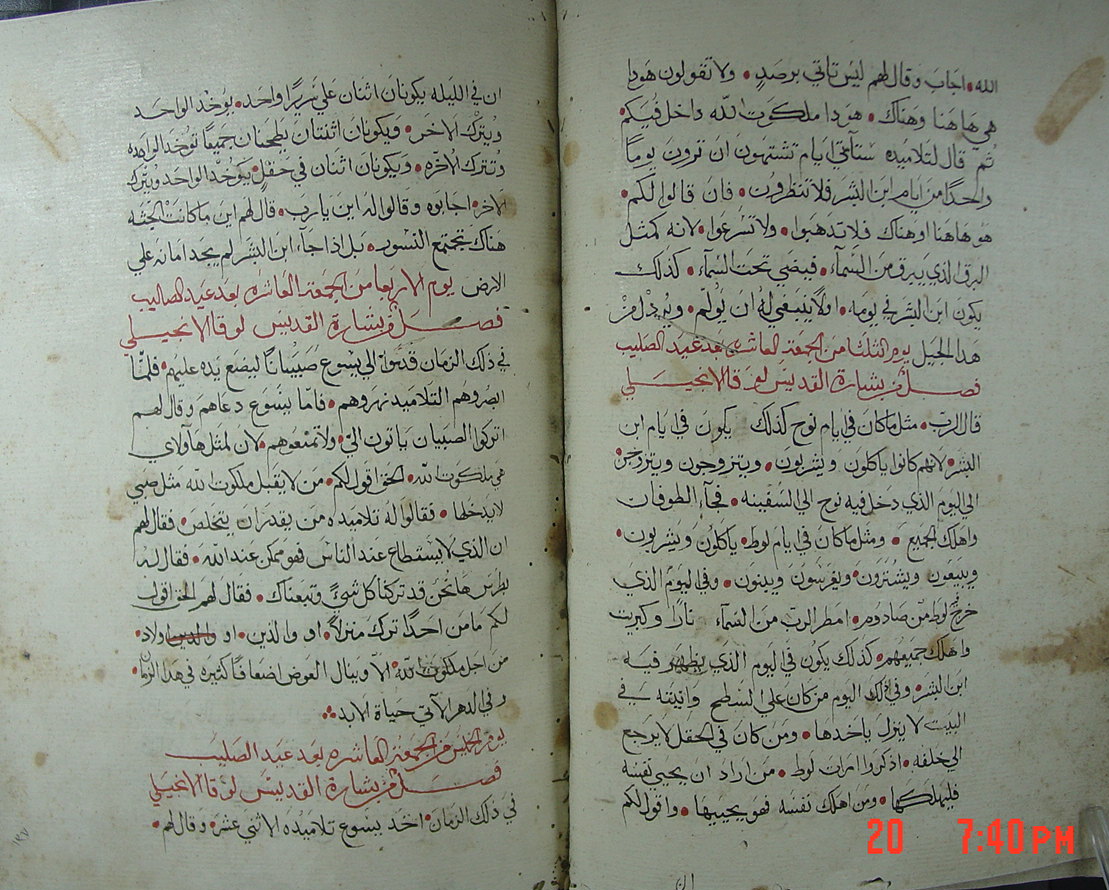 الله • اجاب وقال لهم ليس تاتي برصدٍ • ولا تقولون هوذا
هي هاهنا وهناك • هوذا ملكوت الله داخل فيكم •
ثم قال لتلاميذه ستاتي ايام تشتهون ان ترون يوماً
واحداً من ايام ابن البشر فلا تنظرون • فان قالوا لكم •
هو هاهنا او هناك فلا تذهبوا • ولا تسرعوا • لانه كمثل
البرق الذي يبرق من السمآء • فيضي تحت السمآء • كذلك
يكون ابن البشر في يومه • اولاً ينبغي له ان يولم • ويرذل من
هذا الجيل يوم الثلثا من الجمعه العاشره بعد عيد الصليب
فصل من بشارة القديس لوقا الانجيلي
قال الرب • مثل ما كان في ايام نوح كذلك يكون في ايام ابن
البشر • لانهم كانوا ياكلون ويشربون • ويتزوجون ويتزوجن
الي اليوم الذي دخل فيه نوح الي السفينه • فجآء الطوفان
واهلك الجميع • ومثل ما كان في ايام لوط • ياكلون ويشربون •
ويبيعون ويشترون • ويغرسون ويبنون • وفي اليوم الذي
خرج لوط من صادوم • امطر الرب من السمآء ناراً وكبريت
واهلك جميعهم • كذلك يكون في اليوم الذي يظهر فيه
ابن البشر • وفي ذلك اليوم من كان علي السطح وانيته في
البيت لا ينزل ياخذها • ومن كان في الحقل لا يرجع
الي خلفه • اذكروا امراة لوط • من اراد ان يحيي نفسه
فليهلكها • ومن اهلك نفسه فهو يحييها • واقول لكم
ان في الليله يكونان اثنان علي سريراً واحد • يوخذ الواحد
ويترك الاخر • ويكونان اثنتان يطحنان جميعاً توخذ الواحده
وتترك الاخره • ويكونان اثنان في حقلٍ • يوخذ الواحد ويترك
الاخر • اجابوه وقالوا له اين يارب • قال لهم اين ما كانت الجثه
هناك تجتمع النسور • بل اذا جآء ابن البشر لم يجد امانه علي
الارض يوم الاربعا من الجمعه العاشره بعد عيد الصليب
فصل من بشارة القديس لوقا الانجيلي
في ذلك الزمان قدموا الي يسوع صبياناً ليضع يده عليهم • فلما
ابصروهم التلاميد نهروهم • فاما يسوع دعاهم وقال لهم
اتركوا الصبيان ياتون اليّ • ولا تمنعوهم • لان لمثل هاولاي
هي ملكوت الله • الحق اقول لكم • من لا يقبل ملكوت الله مثل صبي
لا يدخلها • فقالوا له تلاميذه من يقدر ان يتخلص • فقال لهم
ان الذي لا يستطاع عند الناس فهو ممكن عند الله • فقال له
بطرس هانحن قد تركنا كل شيءً وتبعناك • فقال لهم الحق اقول
لكم ما من احداً ترك منزلاً • او والدين • او والدين اولاد •
من اجل ملكوت الله • الا وينال العوض اضعافاً كثيره في هذا الزمان •
وفي الدهر الآتي حياة الابد
يوم الخميس من الجمعه العاشره بعد عيد الصليب
فصل من بشارة القديس لوقا الانجيلي
في ذلك الزمان • اخد يسوع تلاميده الاثني عشر • وقال لهم •
١٣٧
20 7:40 PM